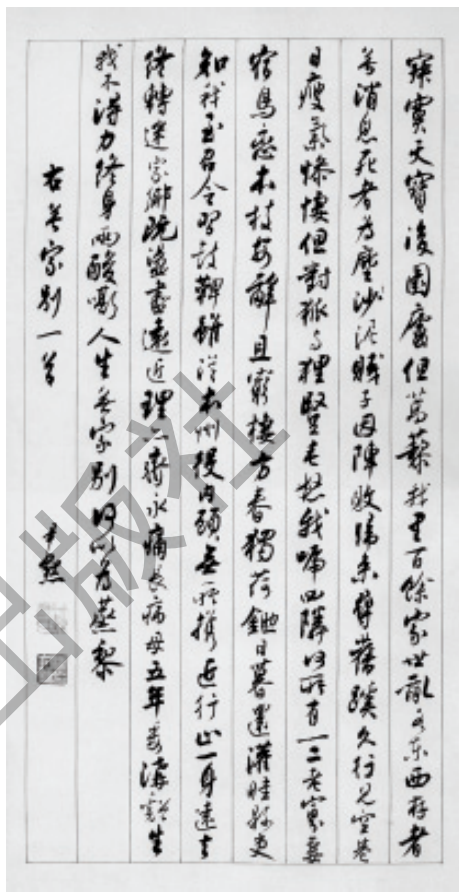 寂寞天寶後園廬但蒿藜我里百餘家世亂各東西存者
无消息死者為塵沙泥賤子因陣敗歸来尋舊蹊久行見空巷
日瘦氣慘悽但對狐与狸豎毛怒我啼四隣何所有一二老寡妻
宿鳥戀本枝安辭且窮棲方春獨荷鋤日暮還灌畦縣吏
知我至召令習鼓鞞雖從本州役內顧無所携近行止一身遠去
終轉迷家鄉既盪盡遠近理亦齊永痛長病母五年委溝谿生
我不得力終身兩酸嘶人生无家別何以為蒸黎
右无家別一首 尹默
出版社